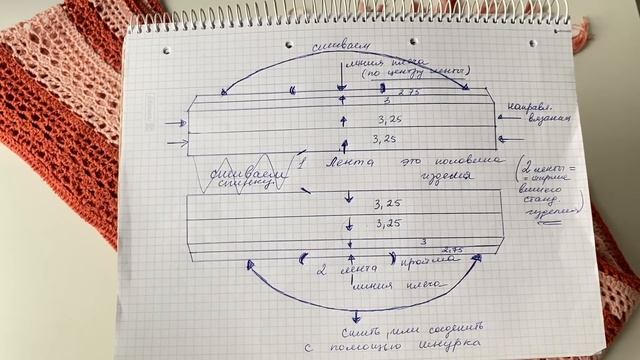 сшиваем
линия плеча
(по центру ленты)
2,75
3
3,25
3,25
направл.
вязания
1 Лента это половина
изделия
сшиваем
спинку
(2 ленты =
= ширине
вашего
станд.
изделия)
3,25
3,25
3
2,75
2 лента пройма
линия плеча
Сшить, или соединить
с помощью шнурка